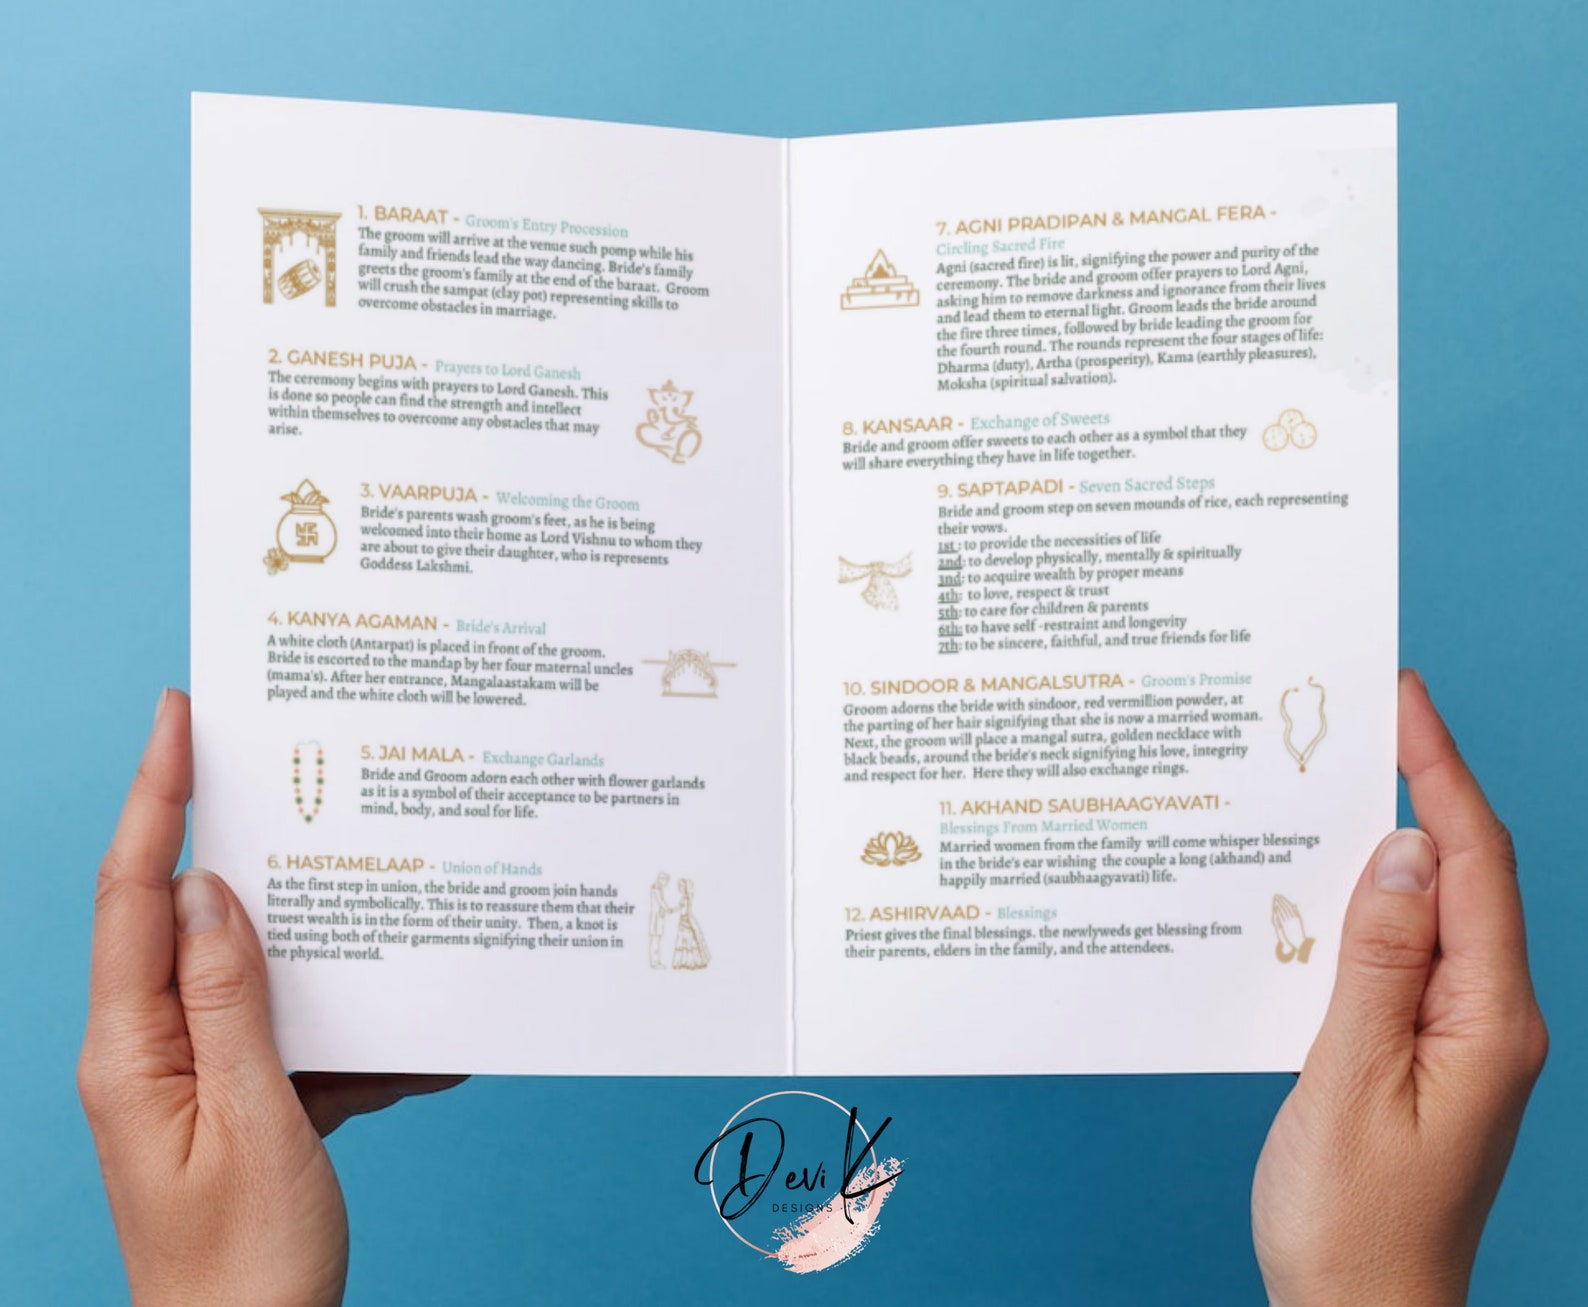 1. BARAAT - Groom's Entry Procession
The groom will arrive at the venue such pomp while his
family and friends lead the way dancing. Bride's family
greets the groom's family at the end of the baraat. Groom
will crush the sampat (clay pot) representing skills to
overcome obstacles in marriage.
2. GANESH PUJA - Prayers to Lord Ganesh
The ceremony begins with prayers to Lord Ganesh. This
is done so people can find the strength and intellect
within themselves to overcome any obstacles that may
arise.
3. VAARPUJA - Welcoming the Groom
Bride's parents wash groom's feet, as he is being
welcomed into their home as Lord Vishnu to whom they
are about to give their daughter, who is represents
Goddess Lakshmi.
4. KANYA AGAMAN - Bride's Arrival
A white cloth (Antarpat) is placed in front of the groom.
Bride is escorted to the mandap by her four maternal uncles
(mama's). After her entrance, Mangalaastakam will be
played and the white cloth will be lowered.
5. JAI MALA - Exchange Garlands
Bride and Groom adorn each other with flower garlands
as it is a symbol of their acceptance to be partners in
mind, body, and soul for life.
6. HASTAMELAAP - Union of Hands
As the first step in union, the bride and groom join hands
literally and symbolically. This is to reassure them that their
truest wealth is in the form of their unity. Then, a knot is
tied using both of their garments signifying their union in
the physical world.
7. AGNI PRADIPAN & MANGAL FERA -
Circling Sacred Fire
Agni (sacred fire) is lit, signifying the power and purity of the
ceremony. The bride and groom offer prayers to Lord Agni,
asking him to remove darkness and ignorance from their lives
and lead them to eternal light. Groom leads the bride around
the fire three times, followed by bride leading the groom for
the fourth round. The rounds represent the four stages of life:
Dharma (duty), Artha (prosperity), Kama (earthly pleasures),
Moksha (spiritual salvation).
8. KANSAAR - Exchange of Sweets
Bride and groom offer sweets to each other as a symbol that they
will share everything they have in life together.
9. SAPTAPADI - Seven Sacred Steps
Bride and groom step on seven mounds of rice, each representing
their vows.
1st : to provide the necessities of life
2nd: to develop physically, mentally & spiritually
3nd: to acquire wealth by proper means
4th: to love, respect & trust
5th: to care for children & parents
6th: to have self -restraint and longevity
7th: to be sincere, faithful, and true friends for life
10. SINDOOR & MANGALSUTRA - Groom's Promise
Groom adorns the bride with sindoor, red vermillion powder, at
the parting of her hair signifying that she is now a married woman.
Next, the groom will place a mangal sutra, golden necklace with
black beads, around the bride's neck signifying his love, integrity
and respect for her. Here they will also exchange rings.
11. AKHAND SAUBHAAGYAVATI -
Blessings From Married Women
Married women from the family will come whisper blessings
in the bride's ear wishing the couple a long (akhand) and
happily married (saubhaagyavati) life.
12. ASHIRVAAD - Blessings
Priest gives the final blessings. the newlyweds get blessing from
their parents, elders in the family, and the attendees.
Devi K
DESIGNS